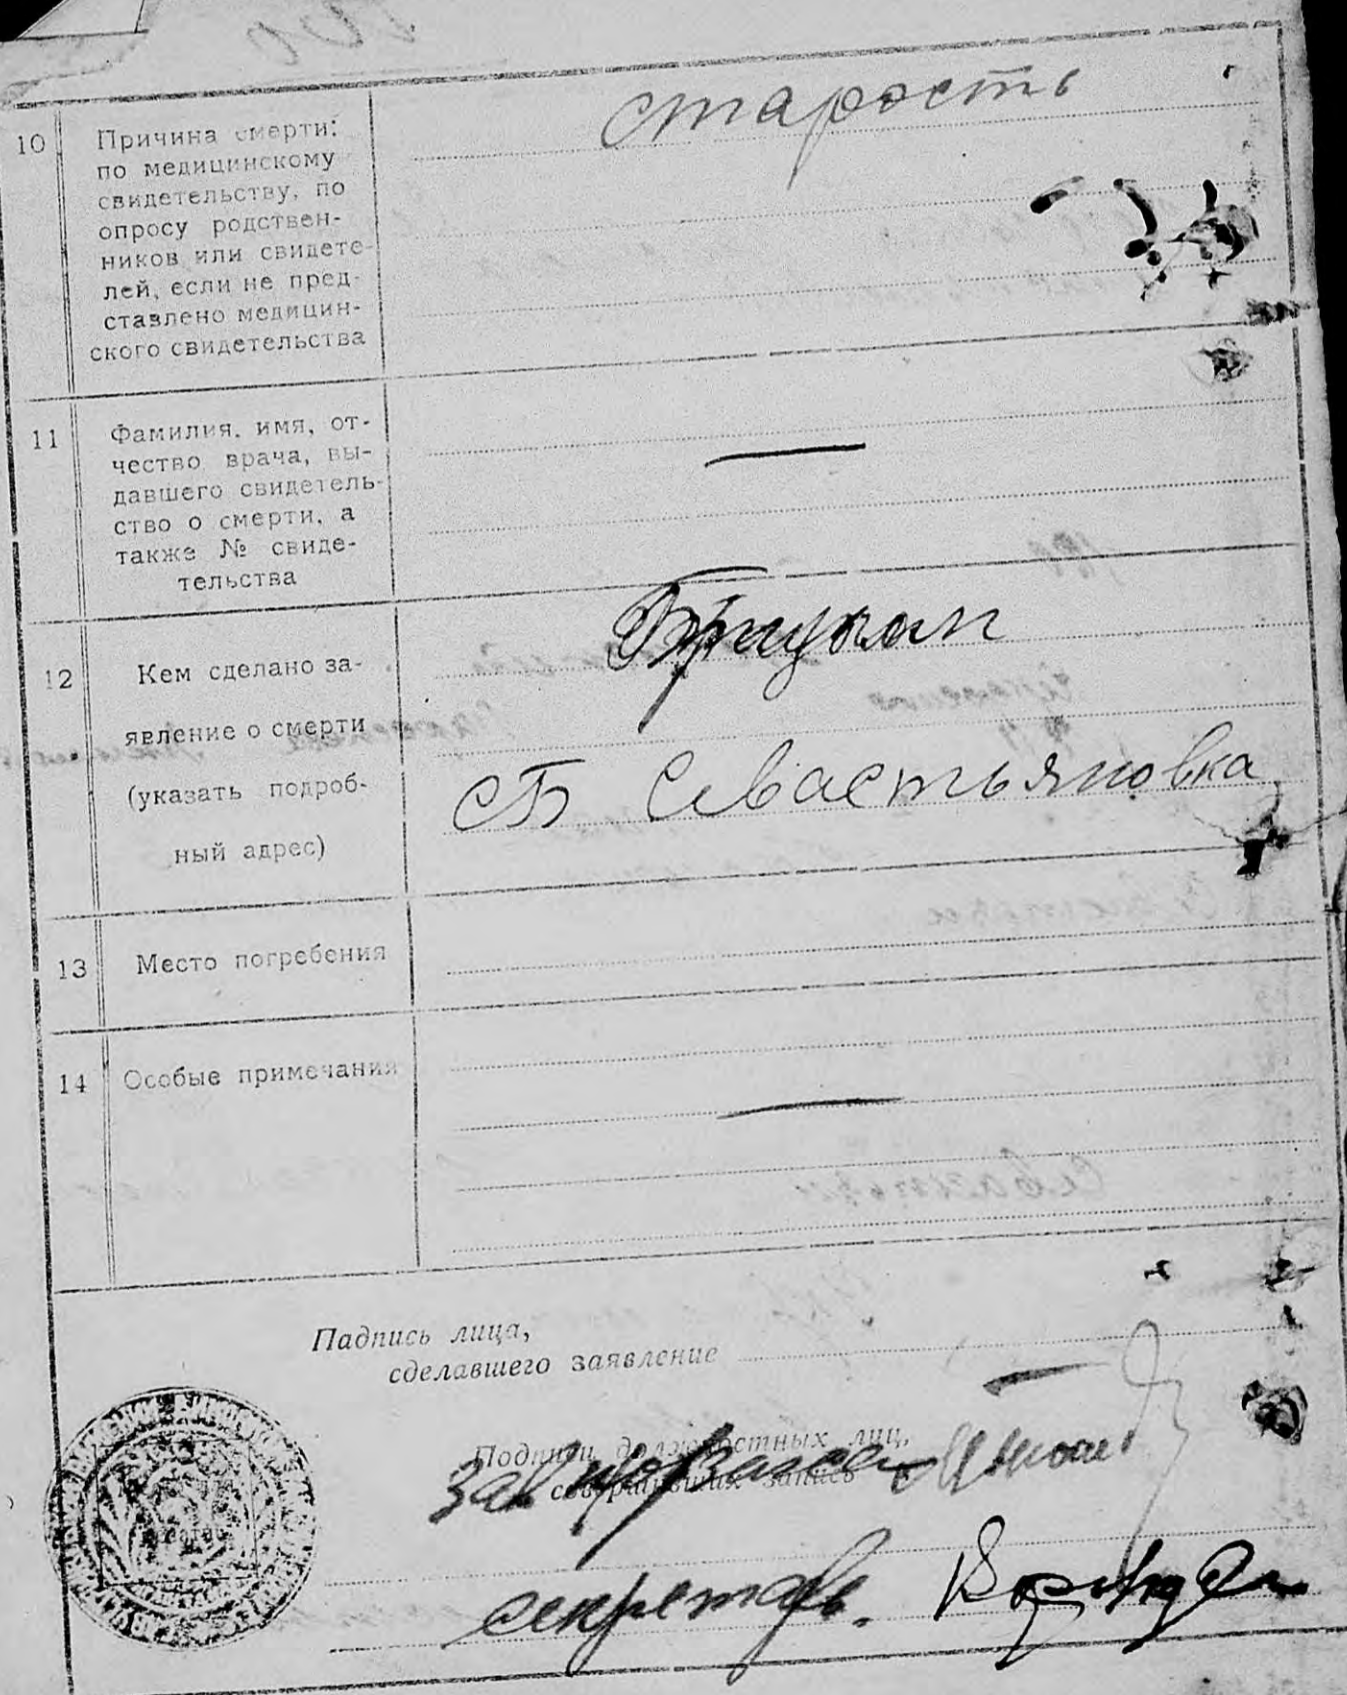 10
Причина смерти:
по медицинскому
свидетельству, по
опросу родствен-
ников или свидете-
лей, если не пред-
ставлено медицин-
ского свидетельства
старость
11
Фамилия, имя, от-
чество врача, вы-
давшего свидетель-
ство о смерти, а
также № свиде-
тельства
—
12
Кем сделано за-
явление о смерти
(указать подроб-
ный адрес)
Севастьяновка
13
Место погребения
14
Особые примечания
—
Падпись лица,
сделавшего заявление
Подписи должностных лиц,
совершивших запись
секретарь